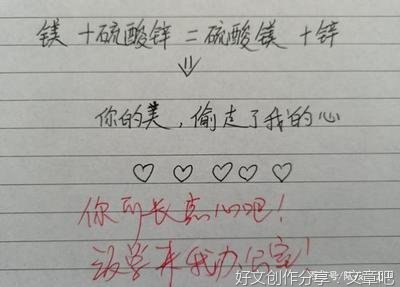 镁+硫酸锌=硫酸镁+锌
⇓
你的美,偷走了我的心
♡ ♡ ♡ ♡ ♡
你可长点心吧!
放学来我办公室!
好文创作分享-文章吧